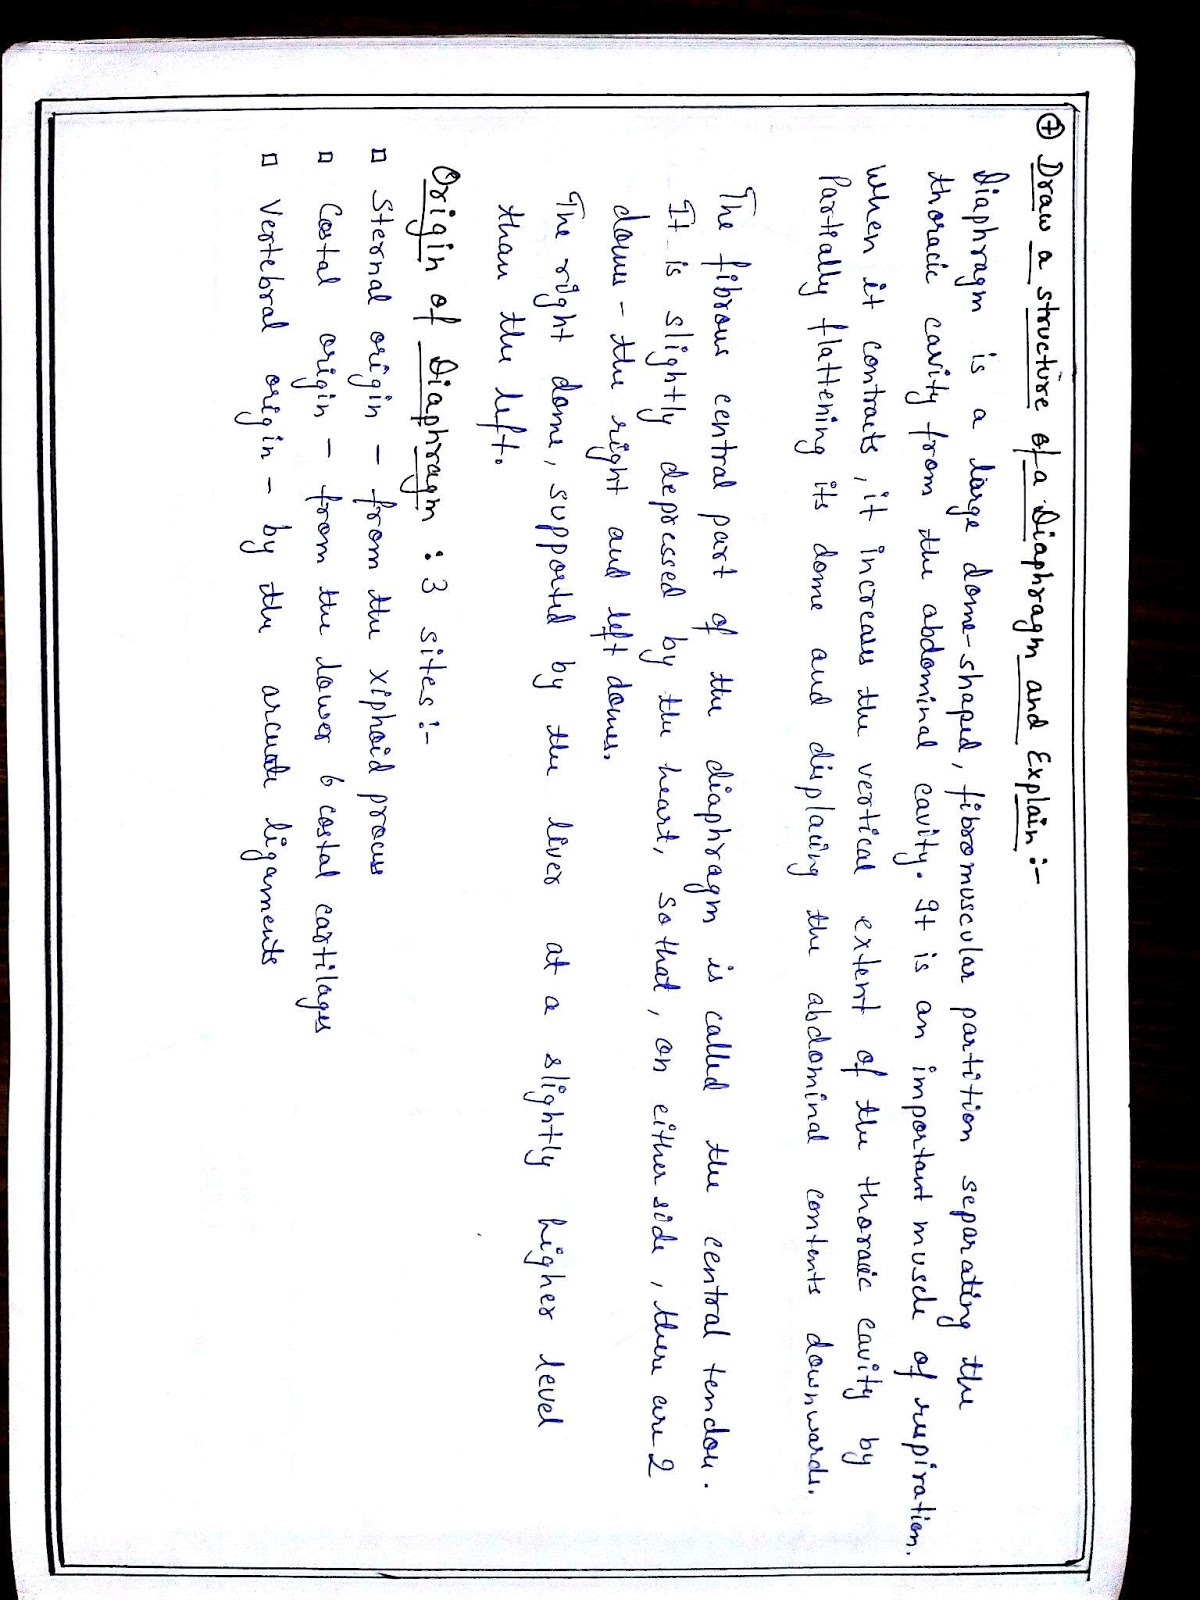 ⑦ Draw a structure of a Diaphragm and Explain :-
Diaphragm is a large dome-shaped, fibromuscular partition separating the
thoracic cavity from the abdominal cavity. It is an important muscle of respiration.
When it contracts, it increases the vertical extent of the thoracic cavity by
Partially flattening its dome and displacing the abdominal contents downwards.
The fibrous central part of the diaphragm is called the central tendon.
It is slightly depressed by the heart, so that, on either side, there are 2
domes - the right and left domes.
The right dome, supported by the liver at a slightly higher level
than the left.
Origin of Diaphragm : 3 sites :-
▫ Sternal origin - from the xiphoid process
▫ Costal origin - from the lower 6 costal cartilages
▫ Vertebral origin - by the arcuate ligaments